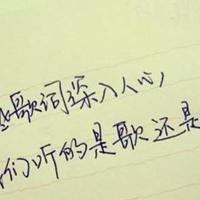 些歌词深入人心,
们听的是歌还是